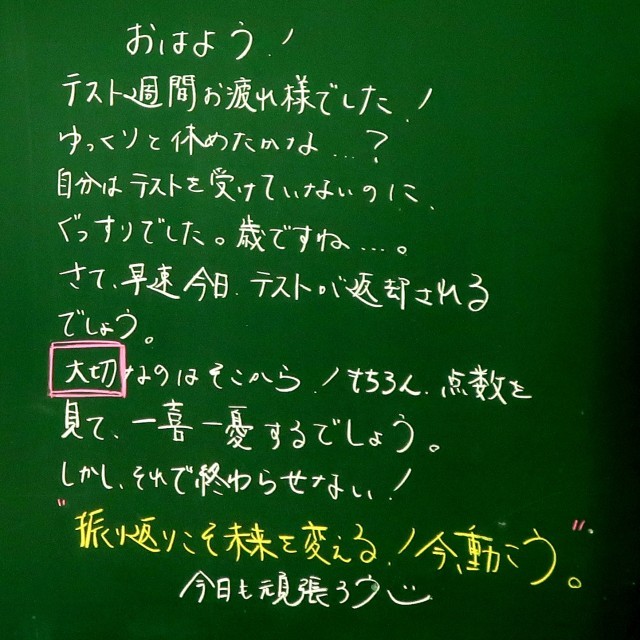 おはよう！
テスト週間お疲れ様でした！
ゆっくりと休めたかな…？
自分はテストを受けていないのに、
ぐっすりでした。歳ですね…。
さて、早速今日、テストが返却される
でしょう。
大切なのはそこから！もちろん、点数を
見て、一喜一憂するでしょう。
しかし、それで終わらせない！
"振り返りこそ未来を変える！今、動こう"。
今日も頑張ろう